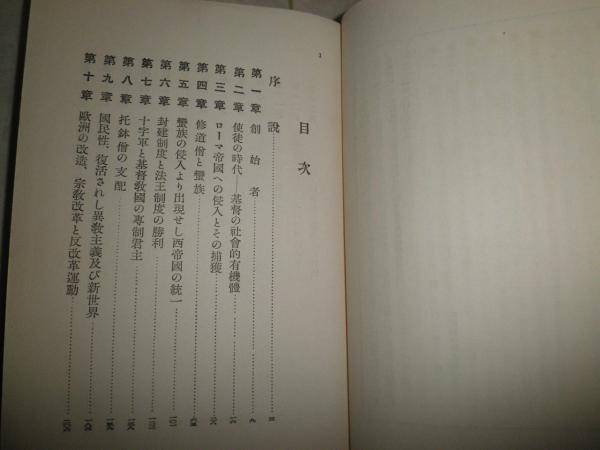 1
目次
序說
第一章 創始者
第二章 使徒の時代—基督の社會的有機體
第三章 ローマ帝國への侵入とその捕獲
第四章 修道僧と蠻族
第五章 蠻族の侵入より出現せし西帝國の統一
第六章 封建制度と法王制度の勝利
第七章 十字軍と基督敎國の專制君主
第八章 托鉢僧の支配
第九章 國民性、復活されし異敎主義及び新世界
第十章 歐洲の改造、宗敎改革と反改革運動